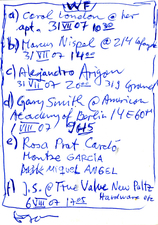 WF
a) Carol London @ her
apt. 31 VII 07 1030
b) Marcus Nispel @ 214 Lafayette
31 VII 07 1400
c) Alejandro
31 VII 07 2000 @ 313 Grand
d) Gary Smith @ American
Academy of Berlin 14 E 60th
1 VIII 07 / 1615
e) Rosa Prat Cardó
Montse GARCÍA
MIQUEL ANGEL
f) J.S. @ True Value New Paltz
6 VIII 07 1705 Hardware etc